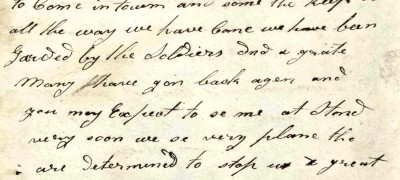 to Come in town and some the keep
all the way we have Cone we have been
Garded by the Soldiers and a grate
Many have gon back agen and
you may Expect to se me at Home
very soon we se very plane the
are determined to stop us a great